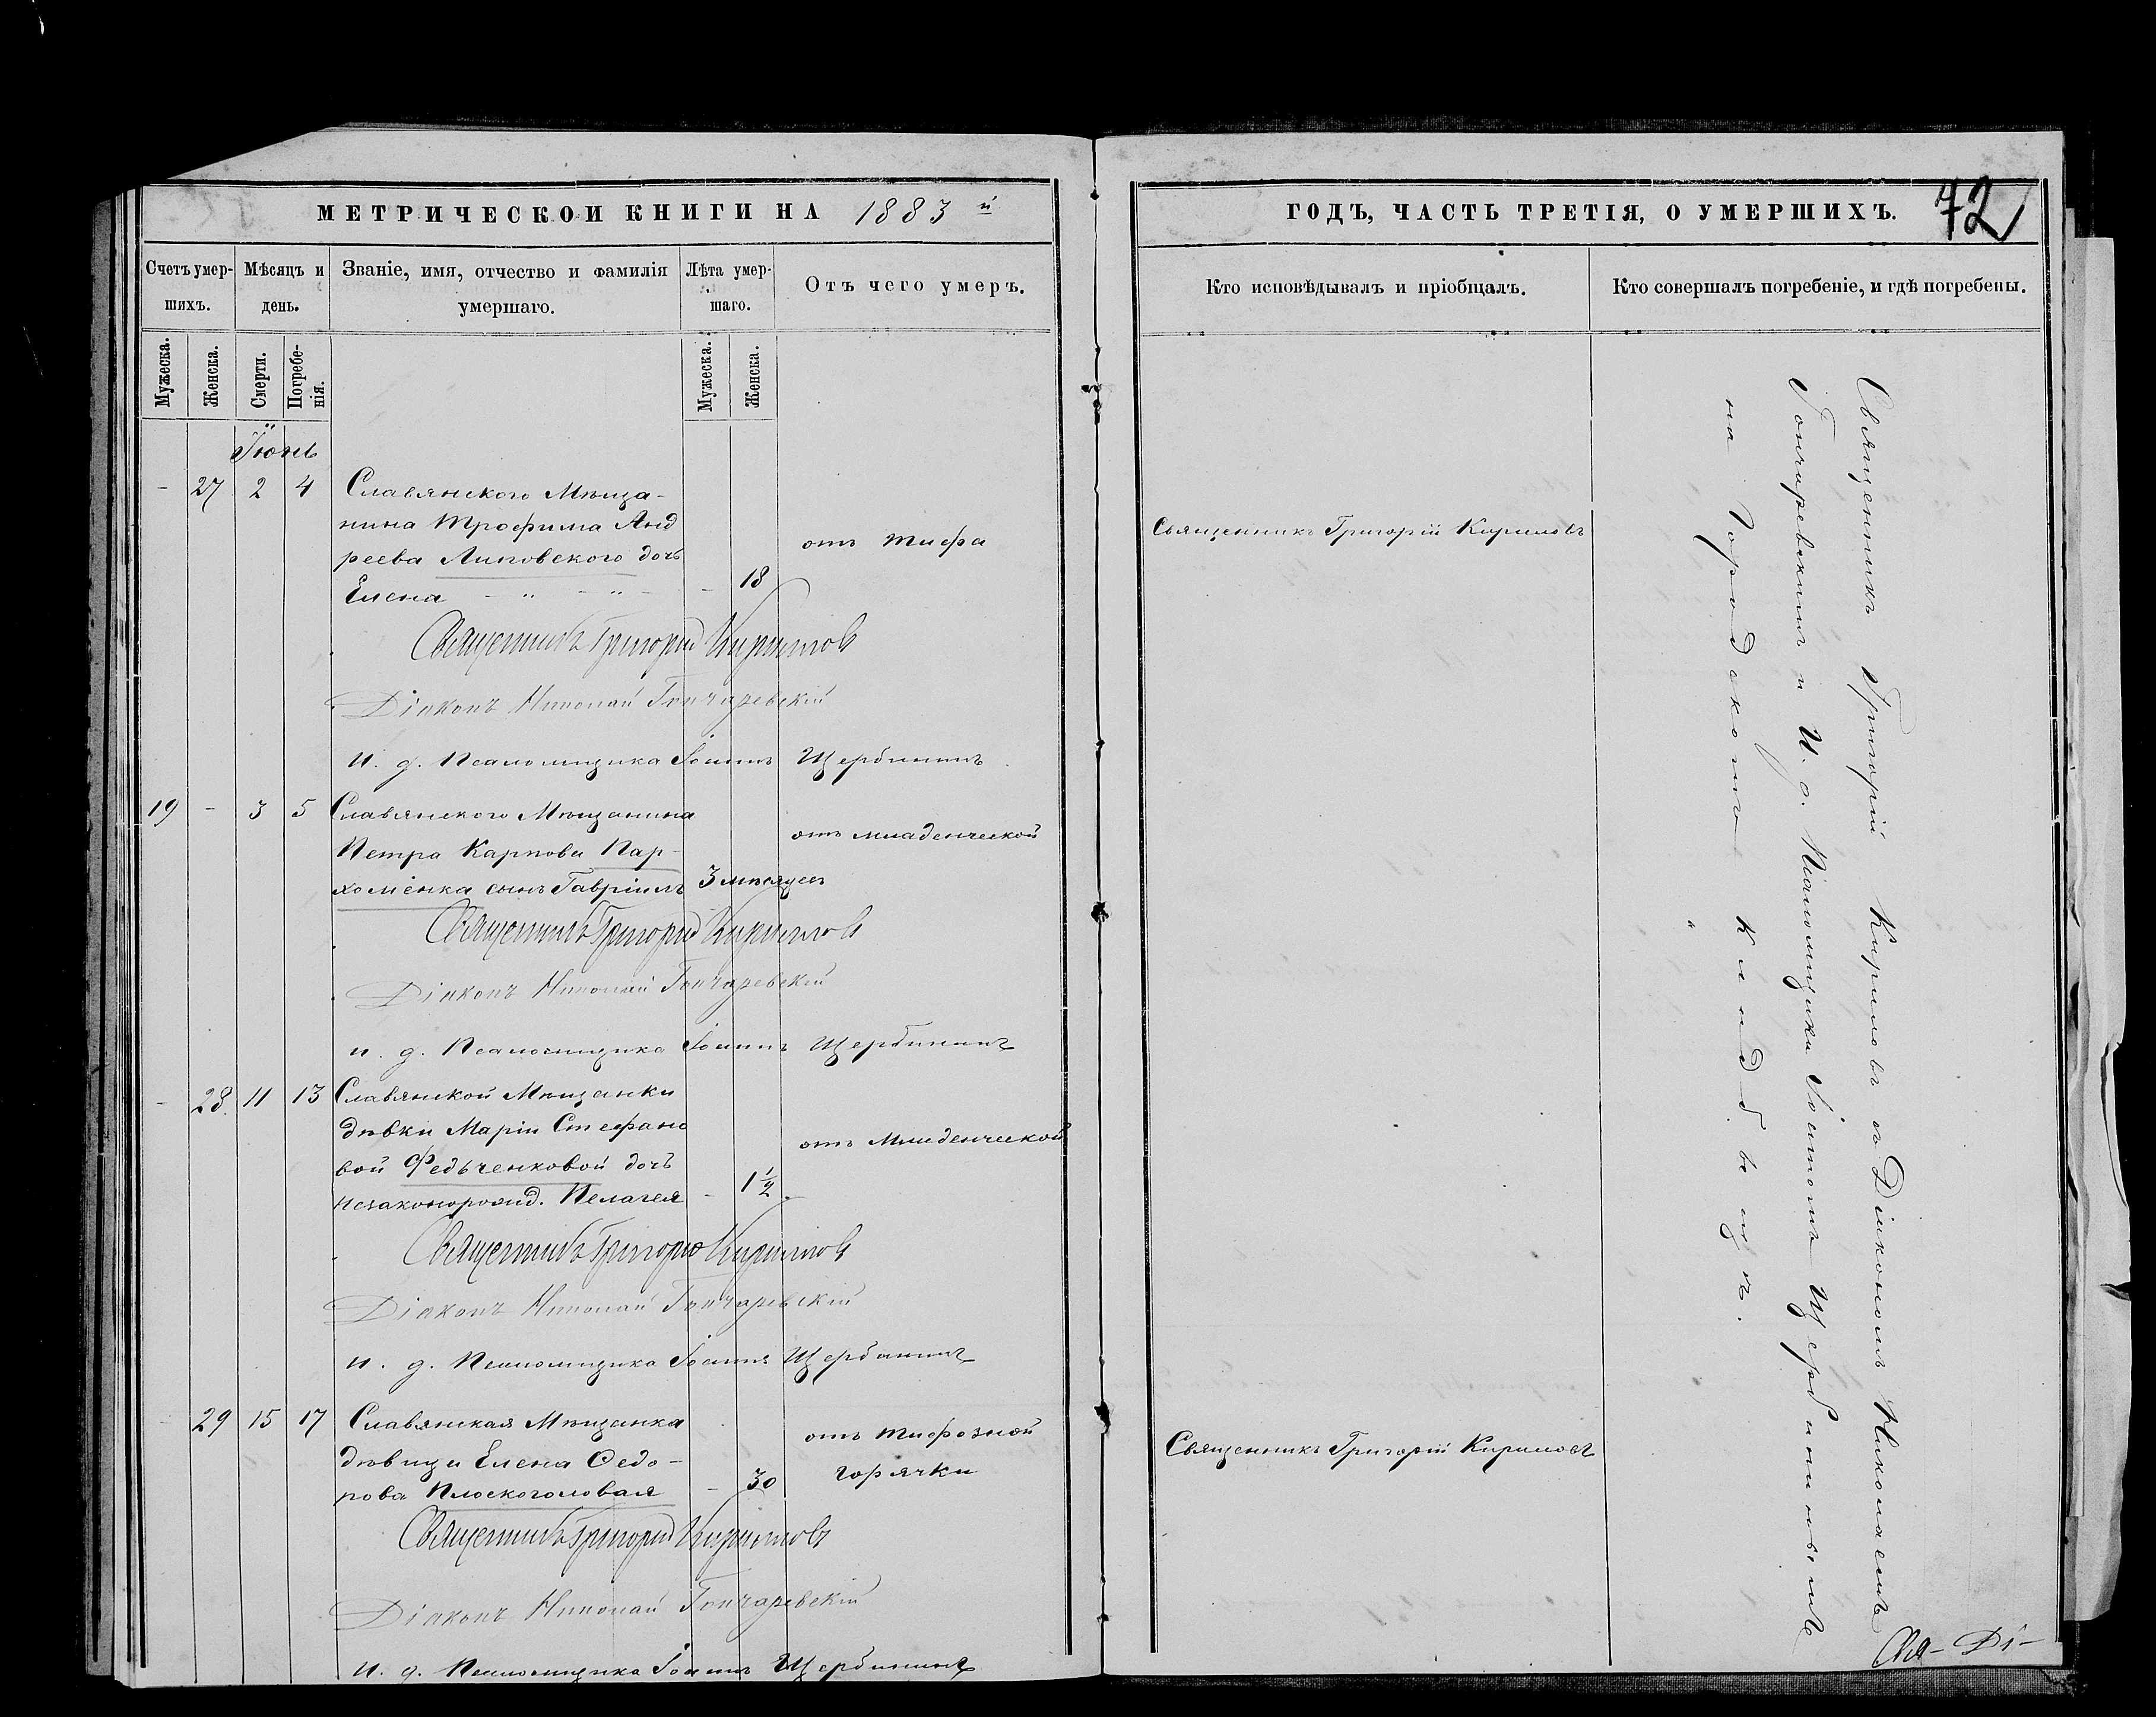 МЕТРИЧЕСКОЙ КНИГИ НА 1883 й
Счетъ умер-
шихъ.
Мѣсяцъ и
день.
Званіе, имя, отчество и фамилія
умершаго.
Лѣта умер-
шаго.
Отъ чего умеръ.
Мужеска.
Женска.
Смерти.
Погребе-
нія.
Мужеска.
Женска.
Іюнь
- 27 2 4 Славянского Мѣща-
нина Трофима Анд
реева Липовского дочь
Елена - " - " - - 18
отъ тифа
Священникъ Григорій Кириловъ
Діаконъ Николай Гончаревскій
и. д. Псаломщика Іоаннъ Щербининъ
19 - 3 5 Славянского Мѣщанина
Петра Карпова Пар-
хоменка сынъ Гавріилъ 3 мѣсяцев
отъ младенческой
Священникъ Григорій Кириловъ
Діаконъ Николай Гончаревскій
и. д. Псаломщика Іоаннъ Щербининъ
- 28. 11 13 Славянской Мѣщанки
дѣвки Маріи Стефано
вой Федьченковой дочь
незаконорожд. Пелагея - 1 1/2
отъ Младенческой
Священникъ Григорій Кириловъ
Діаконъ Николай Гончаревскій
и. д. Псаломщика Іоаннъ Щербининъ
- 29 15 17 Славянская Мѣщанка
дѣвица Елена Ѳедо-
рова Плоскоголовая - 30
отъ тифозной
горячки
Священникъ Григорій Кириловъ
Діаконъ Николай Гончаревскій
и. д. Псаломщика Іоаннъ Щербининъ
ГОДЪ, ЧАСТЬ ТРЕТІЯ, О УМЕРШИХЪ.
72
Кто исповѣдывалъ и пріобщалъ.
Кто совершалъ погребеніе, и гдѣ погребены.
Священникъ Григорій Кириловъ
Священникъ Григорій Кириловъ
Священникъ Григорій Кириловъ съ Діакономъ Николаемъ
Гончаревскимъ и И. д. Псаломщика Іоанномъ Щербининымъ
на Городскомъ Кладбищѣ.
Свя- Ді-